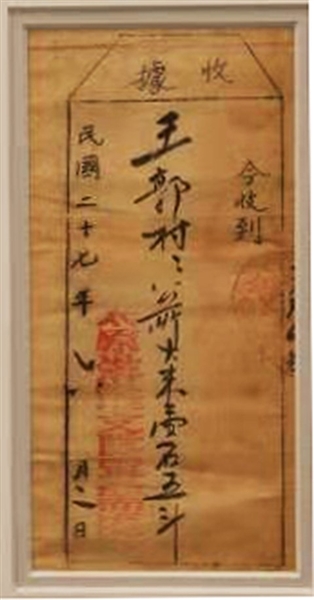 收據
今收到
王郭村大米壹石五斗
民國二十七年月二日